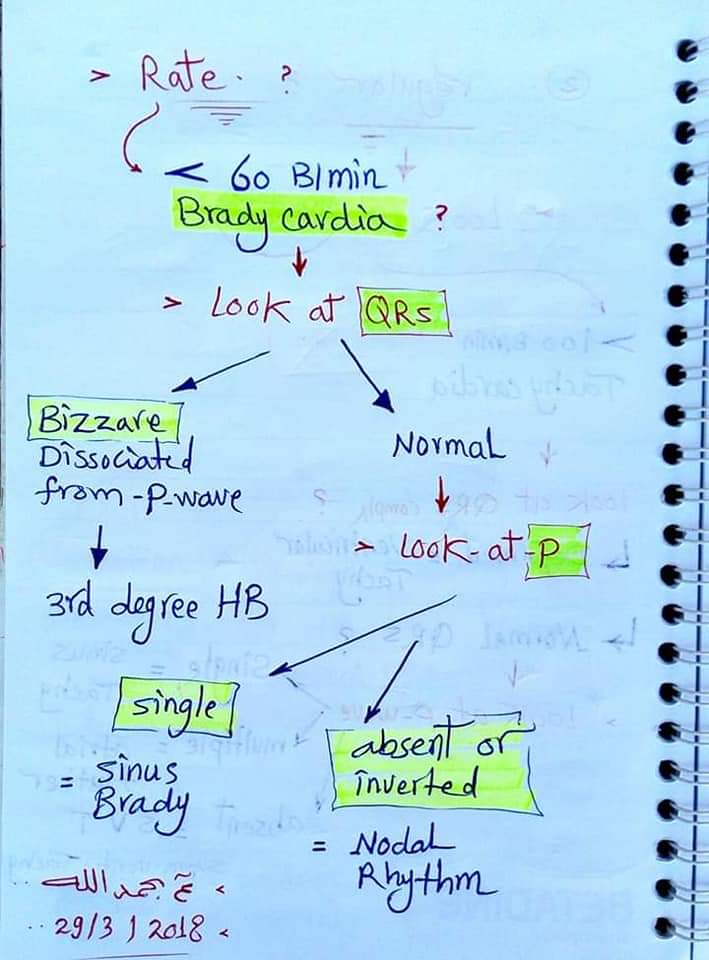 > Rate. ?
< 60 B/min
Brady cardia ?
> Look at QRs
Bizzare
Dissociated
from-P-wave
3rd degree HB
Normal
> Look-at-P
single
= sinus
Brady
absent or
inverted
= Nodal
Rhythm
حمد الله
29/3/2018